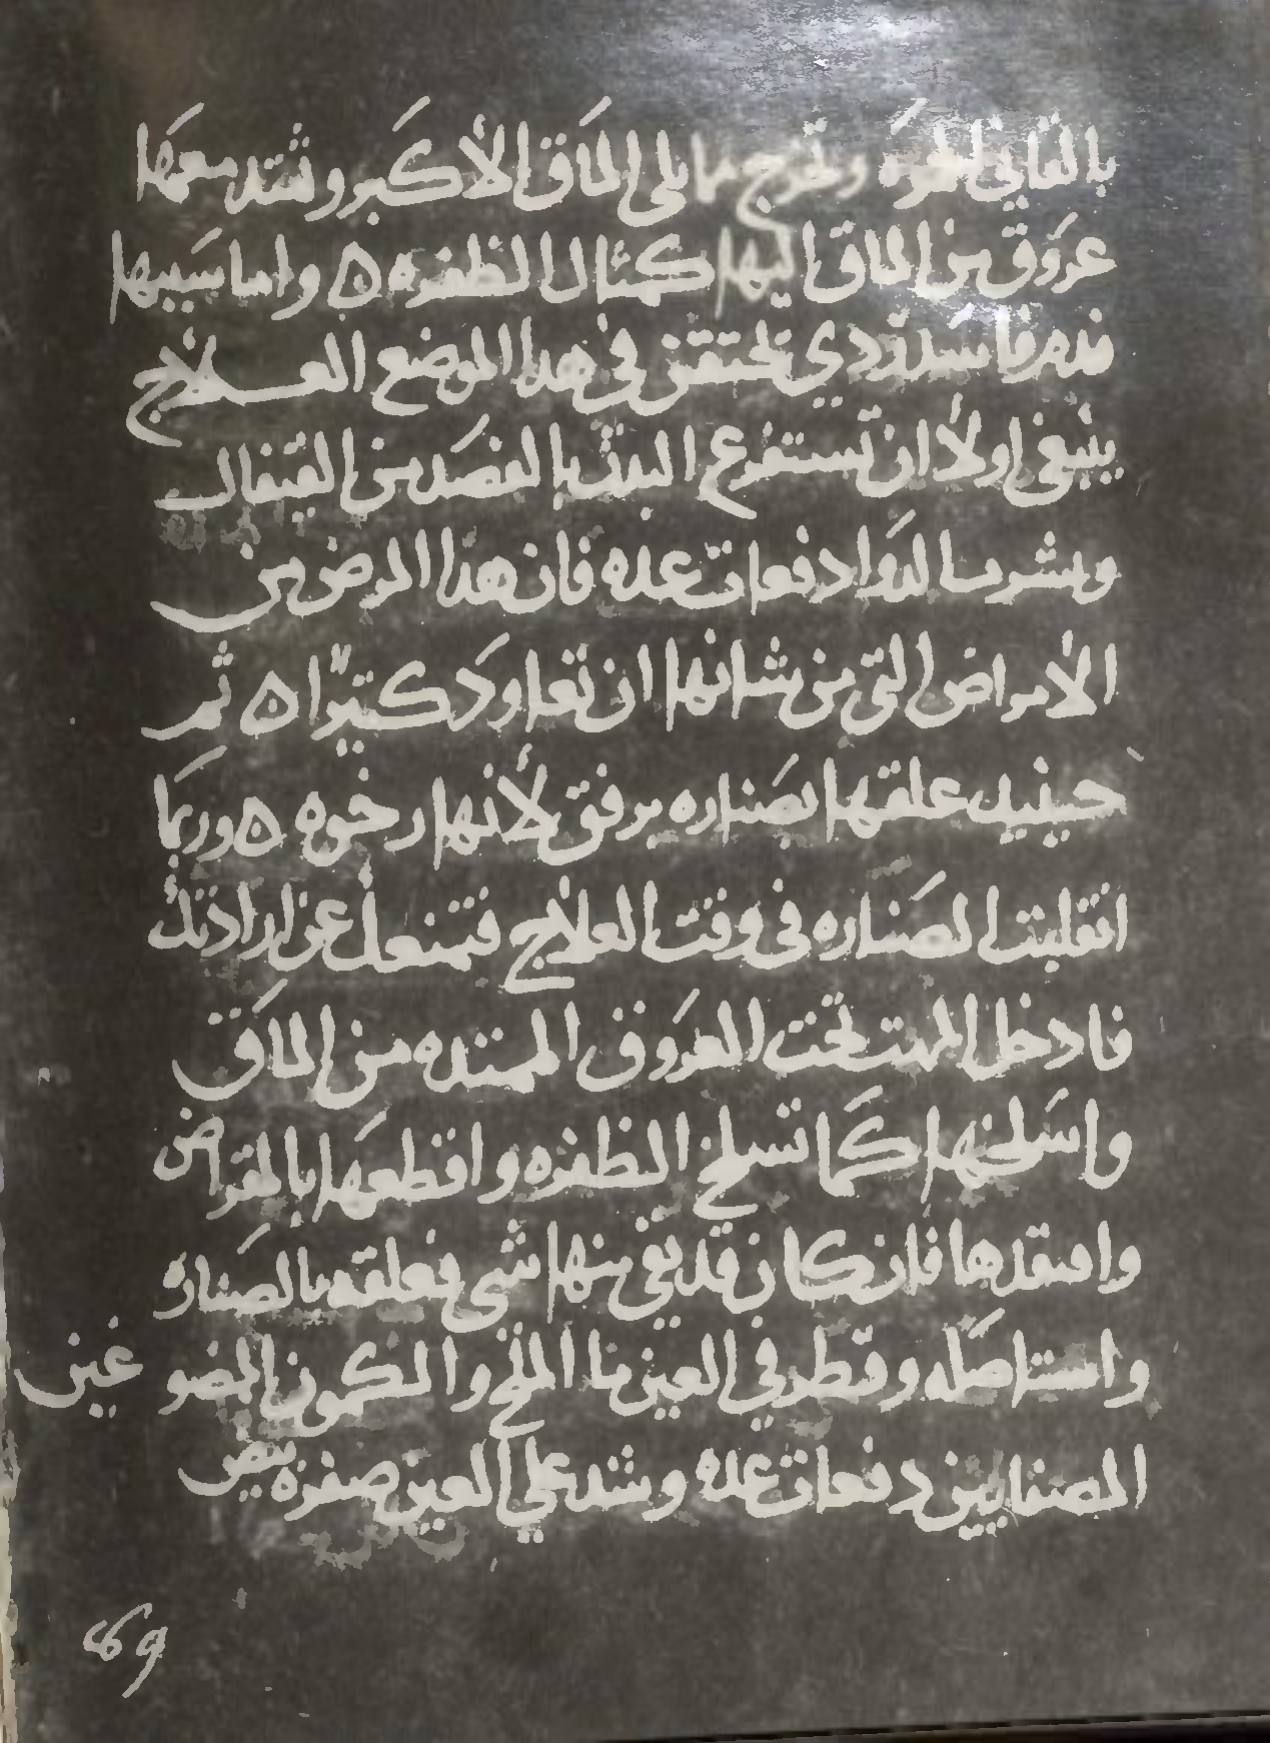 بالقاني لحوه وتخرج مما يلى الماق الأكبر وتمتد معها
عروق من الماق اليها كمثال الظفره ٥ واما سببها
فدم فاسد ردي تحتقن في هدا الموضع العلاج
ينبغي اولا ان تستفرغ البدن بالفصد من القيفال
وبشرب الدوا دفعات عده فان هدا المرض من
الأمراض التي من شانها ان تعاود كتيرًا ٥ ثم
حينيد علقها بصناره برفق لأنها رخوه ٥ وربما
انقلبت الصناره في وقت العلاج فتمنعك عن ارادتك
فادخل المهت تحت العروق الممتده من الماق
واسلخها كما تسلخ الظفره واقطعها بالمقراض
وافتقدها فان كان قد بقي منها شي فعلقه بالصناره
واستاصله وقطر في العين ما الملح والكمون الممضو غين
المصفايين دفعات عده وشد علي العين صفرة بيض